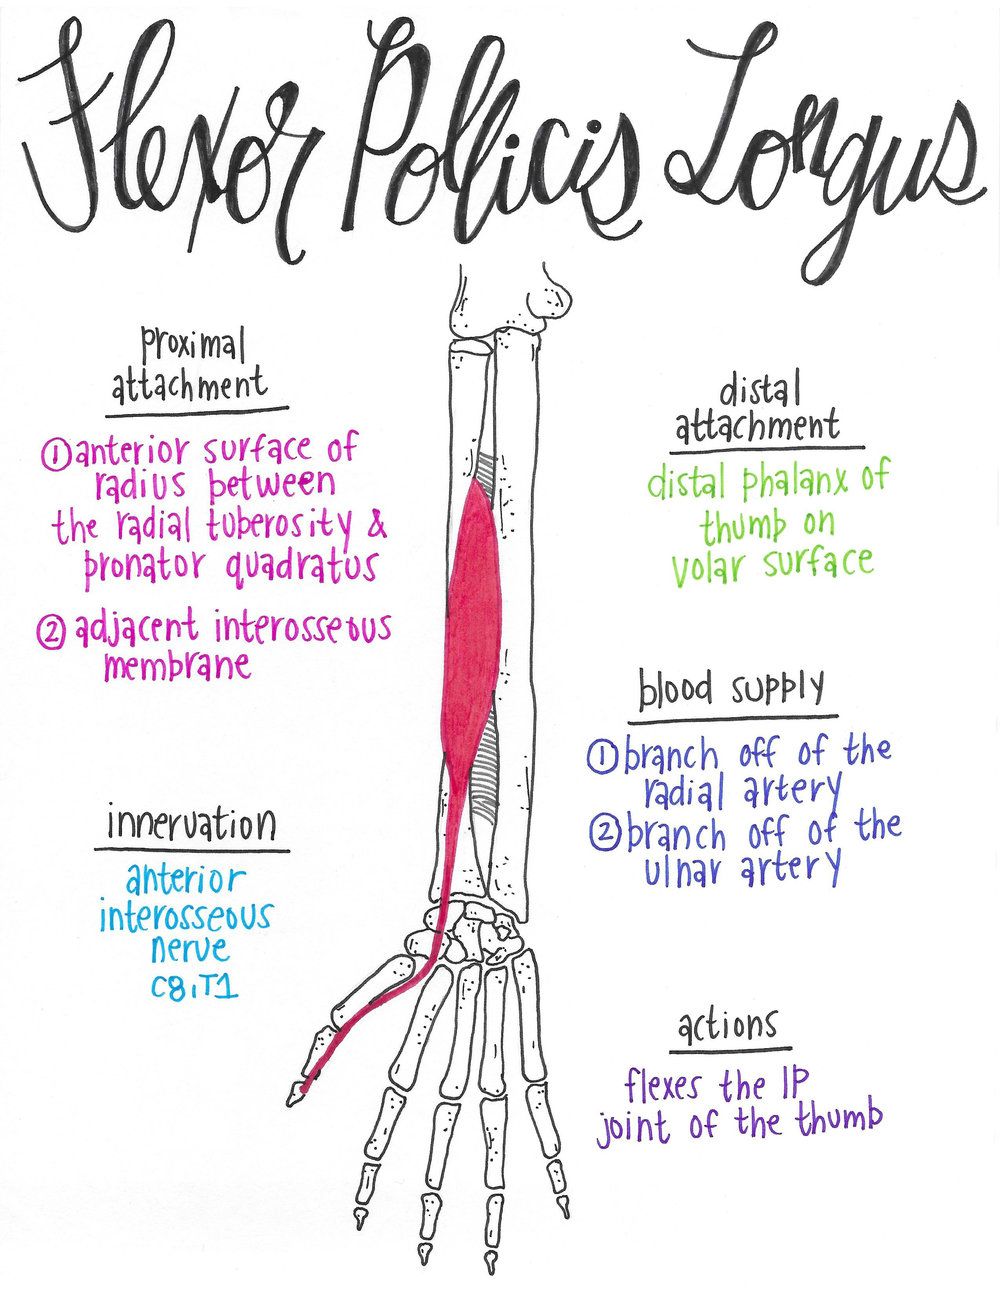 Flexor Pollicis Longus
proximal
attachment
① anterior surface of
radius between
the radial tuberosity &
pronator quadratus
② adjacent interosseous
membrane
innervation
anterior
interosseous
nerve
C8,T1
distal
attachment
distal phalanx of
thumb on
volar surface
blood supply
① branch off of the
radial artery
② branch off of the
ulnar artery
actions
flexes the IP
joint of the thumb